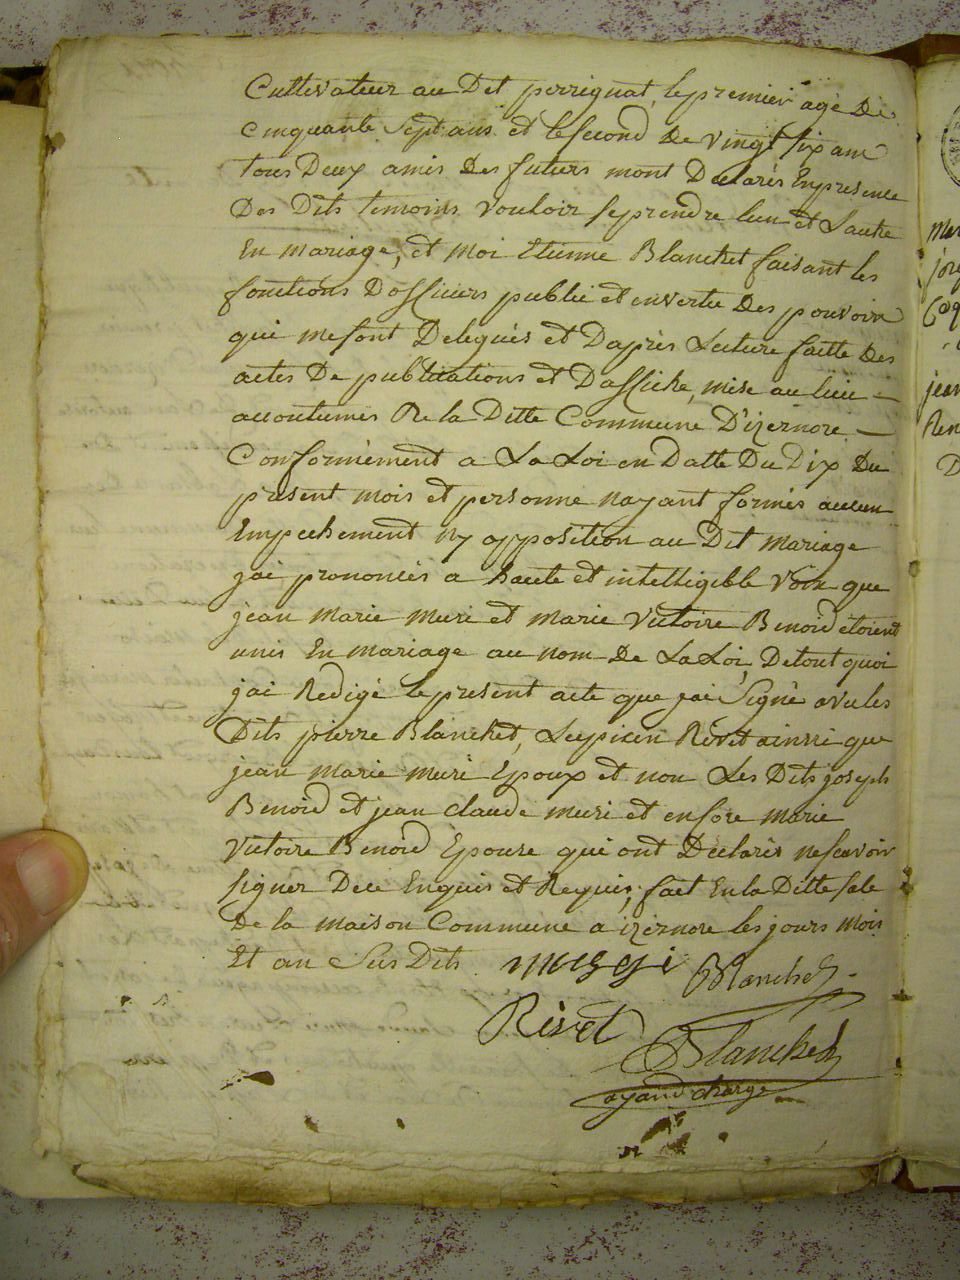 Cultivateur au Dit perrignat, le premier agé De
cinquante Sept ans et le second De vingt six ans
tous Deux amis Des futurs mont Declarés En presence
Des Dits temoins vouloir se prendre lun et Lautre
En mariage, et moi Etienne Blanchet faisant les
fonctions Dofficiers publié et en vertu Des pouvoirs
qui me sont Delegués et Daprès Lecture faitte Des
actes De publications et Daffiche, mise au lieu
accoutumés De la Ditte Commune D'izernore
Conformément a La Loi en Datte Du Dix Du
present mois et personne nayant formés aucun
Empechement ny opposition au Dit mariage
jai prononcés a haute et intelligible voix que
jean marie muri et marie victoire Benoid etoient
unis En mariage au nom De La Loi, De tout quoi
jai Redigé le present acte que jai Signé avec les
Dits pierre Blanchet, Lupicin Rivet ainsi que
jean marie muri Epoux et non Les Dits joseph
Benoid et jean claude muri et enfore marie
Victoire Benoid Epouse qui ont Declarés ne scavoir
signer De ce Enquis et Requis, fait En la Ditte sale
De la maison Commune a izernore les jours mois
Et an Sus Dits
Blanchet
Rivet
Blanchet
ayand charge